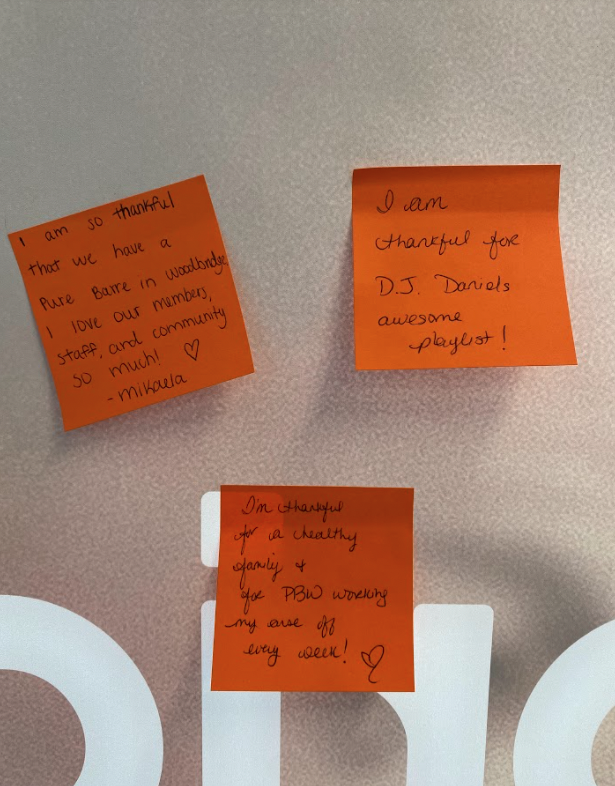 I am so thankful
that we have a
Pure Barre in Woodbridge
I love our members,
staff, and community
so much! ♡
- Mikaela
I am
thankful for
D.J. Daniels
awesome
playlist!
I'm thankful
for a healthy
family &
for PBW working
my arse off
every week! ♡